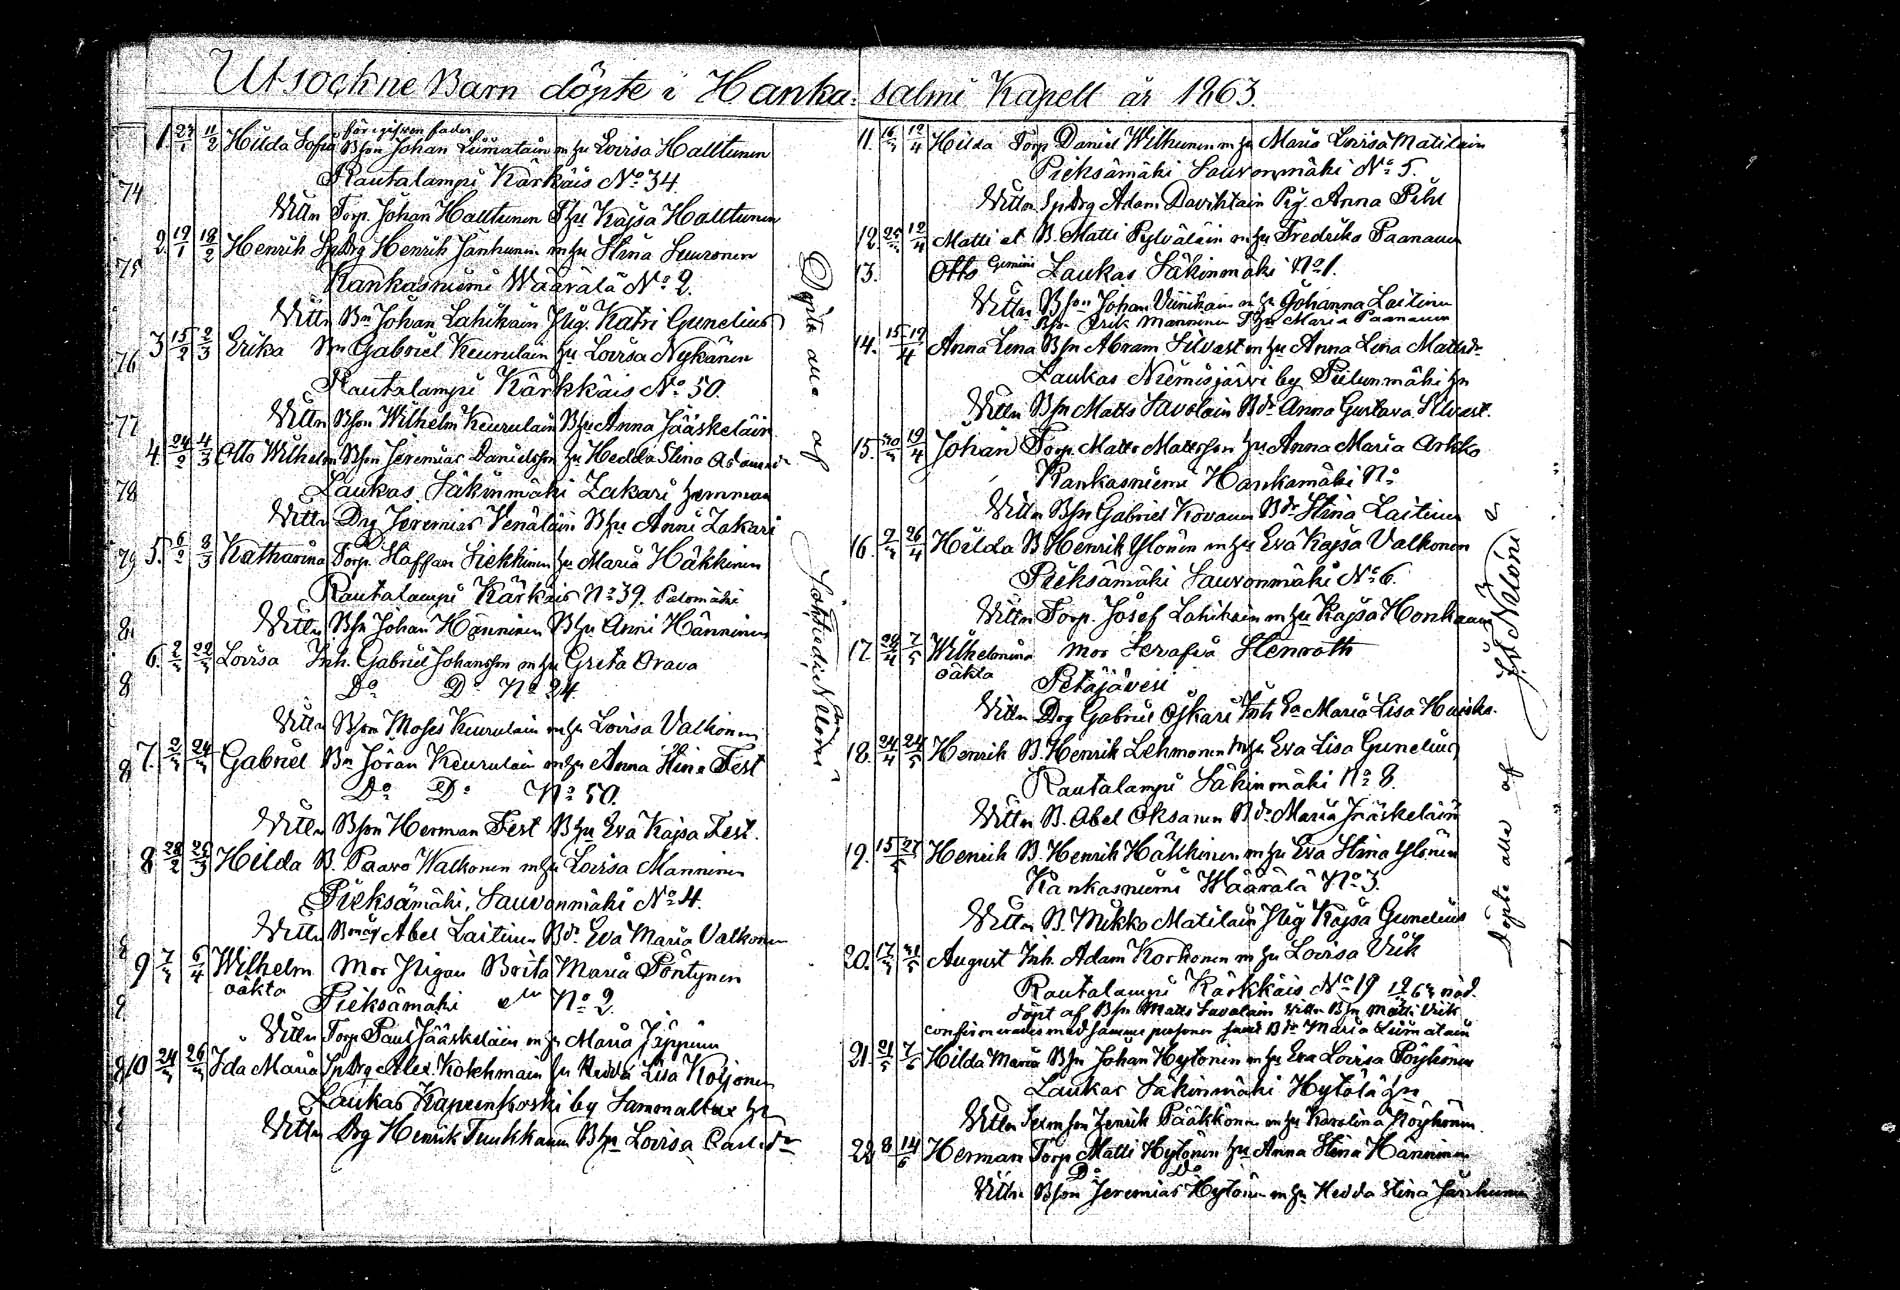 Utsockne Barn döpte i Hankasalmi Kapell år 1863.
74
75
76
77
78
79
1. 11/2 Hilda Sofia Bson Johan Lumatain m hu Lovisa Halttunen
Rautalampi Kärkäis No 34.
Vittn Torp. Johan Halttunen Thu Kajsa Halttunen
2. 19/1 18/2 Henrik SpDrg Henrik Janhunen m hu Stina Suuronen
Kankasniemi Wäärälä No 2.
Vittn Bn Johan Lahikain Pig. Katri Gunelius
3 15/2 2/3 Erika Bn Gabriel Keurulain hu Lovisa Nykänen
Rautalampi Kärkkäis No 50.
Vittn Bson Wilhelm Keurulain Bhu Anna Jääskeläin
4. 24/2 4/3 Otto Wilhelm Bson Jeremias Danielsson hu Hedda Stina
Laukas Säkinmäki Zakari hemman
Vittn Drg Jeremias Venäläin Bhu Anni Zakari
5. 6/2 8/3 Katharina Torp. Staffan Siekkinen hu Maria Häkkinen
Rautalampi Kärkäis No 39. Palomäki
Vittn Bsn Johan Hänninen Bhu Anni Hänninen
6. 2/3 22/3 Lovisa Inh. Gabriel Johansson m hu Greta Orava
Do Do No 24
Vittn Bson Moses Keurulain m hu Lovisa Valkonen
7. 2/3 24/3 Gabriel Bn Jöran Keurulain m hu Anna Stina Fest
Do Do No 50.
Vittn Bson Herman Fest Bhu Eva Kajsa Fest.
8 28/2 25/3 Hilda B. Paavo Walkonen m hu Lovisa Manninen
Pieksämäki, Sauvonmäki No 4.
Vittn Abel Laitinen Bdr Eva Maria Valkonen
9 7/3 6/4 Wilhelm Mor Pigan Brita Maria Pöntynen
oäkta Pieksämäki No 2.
Vittn Torp Paul Jääskeläin m hu Maria Jäppinen
10 24/3 26/3 Ida Maria SpDrg Alex Kolehmain hu Hedda Lisa Koljonen
Laukas Kapeenkoski by
Vittn Drg Henrik Tuukkanen Bhu Lovisa
Döpte alla af
11. 16/3 12/4 Hilda Torp Daniel Wilhunen m hu Maria Lovisa Matilain
Pieksämäki Sauvonmäki No 5.
Vittn SpDrg Adam Davihtain Pig. Anna Pihl
12. 25/3 12/4 Matti et B. Matti Pylväläin m hu Fredrika Paananen
13. Otto Gemini Laukas Säkinmäki No 1.
Vittn Bson Johan Viinikain m hu Johanna Laitinen
Bsn Erik Manninen Thu Maria Paananen
14. 15/4 19/4 Anna Lena Bsn Abram Silvast m hu Anna Lena Mattsdr
Laukas Niemisjärvi by Pielunmäki hn
Vittn Bsn Matts Savolain Bdr Anna Gustava Silvast.
15. 30/3 19/4 Johan Torp. Matts Mattsson hu Anna Maria Arkko
Kankasniemi Hankamäki No
Vittn Bsn Gabriel Kovanen Bdr Stina Laitinen
16. 26/4 Hilda B Henrik Ylönen m hu Eva Kajsa Valkonen
Pieksämäki Sauvonmäki No 6.
Vittn Torp. Josef Lahikain m hu Kajsa Honkanen
17. 7/5 Wilhelmina Mor Serafia Stenroth
oäkta Petäjävesi
Vittn Drg Gabriel Oskari Maria Lisa
18. 24/4 24/5 Henrik B. Henrik Lehmonen m hu Eva Lisa Gunelius
Rautalampi Säkinmäki No 8.
Vittn B. Abel Oksanen Bdr Maria Jääskeläin
19. 15/5 27/5 Henrik B. Henrik Häkkinen m hu Eva Stina Ylönen
Kankasniemi Wäärälä No 3.
Vittn B. Mikko Matilain Pig Kajsa Gunelius
20. 17/5 31/5 August Inh. Adam Korhonen m hu Lovisa Vik
Rautalampi Kärkkäis No 19
döpt af Bsn Matts Savolain Vittn Bsn Matti
confirmerades med samma personer samt Bdr Maria Lumatain
21. 21/5 7/6 Hilda Maria Bsn Johan Hytönen m hu Eva Lovisa Pöyhönen
Laukas Säkinmäki Hytölä hn
Vittn Henrik Pääkkönen m hu Karolina Pöyhönen.
22 8 14/6 Herman Torp Matti Hytönen hu Anna Stina Hänninen
Do Do
Vittn Bson Jeremias Hytönen m hu Hedda Stina Janhunen
Döpte alla af